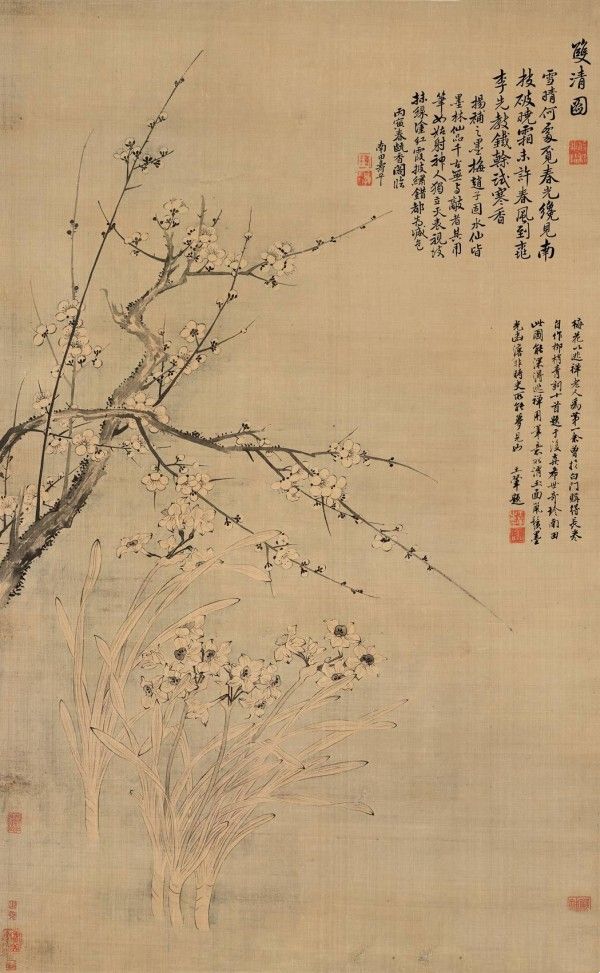 雙清圖
雪晴何處覓春光纔見南
枝破曉霜未許春風到桃
李先教鐵幹試寒香
楊補之墨梅趙子固水仙皆
墨林仙品千古無與敵者其用
筆如姑射神人獨立天表視彼
抹綠塗紅霞披繡錯都為減色
丙寅春甌香閣臨
南田壽平
梅花以逃禪老人為第一余曾於白門購得長卷
自作柳梢青詞十首題于後真希世奇珍南田
此圖能深得逃禪用筆意所謂玉面風墨
光幽澹非時史所能夢見也 王翬題